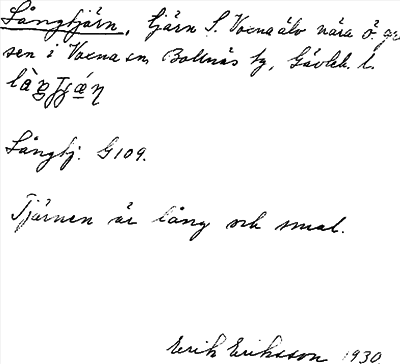 Långtjärn, tjärn S. Voxnaälv nära ö. gr
sen i Voxna sn, Bollnäs tg, Gävleb. l.
Långtj. G109.
Tjärnen är lång och smal.
Erik Eriksson 1930